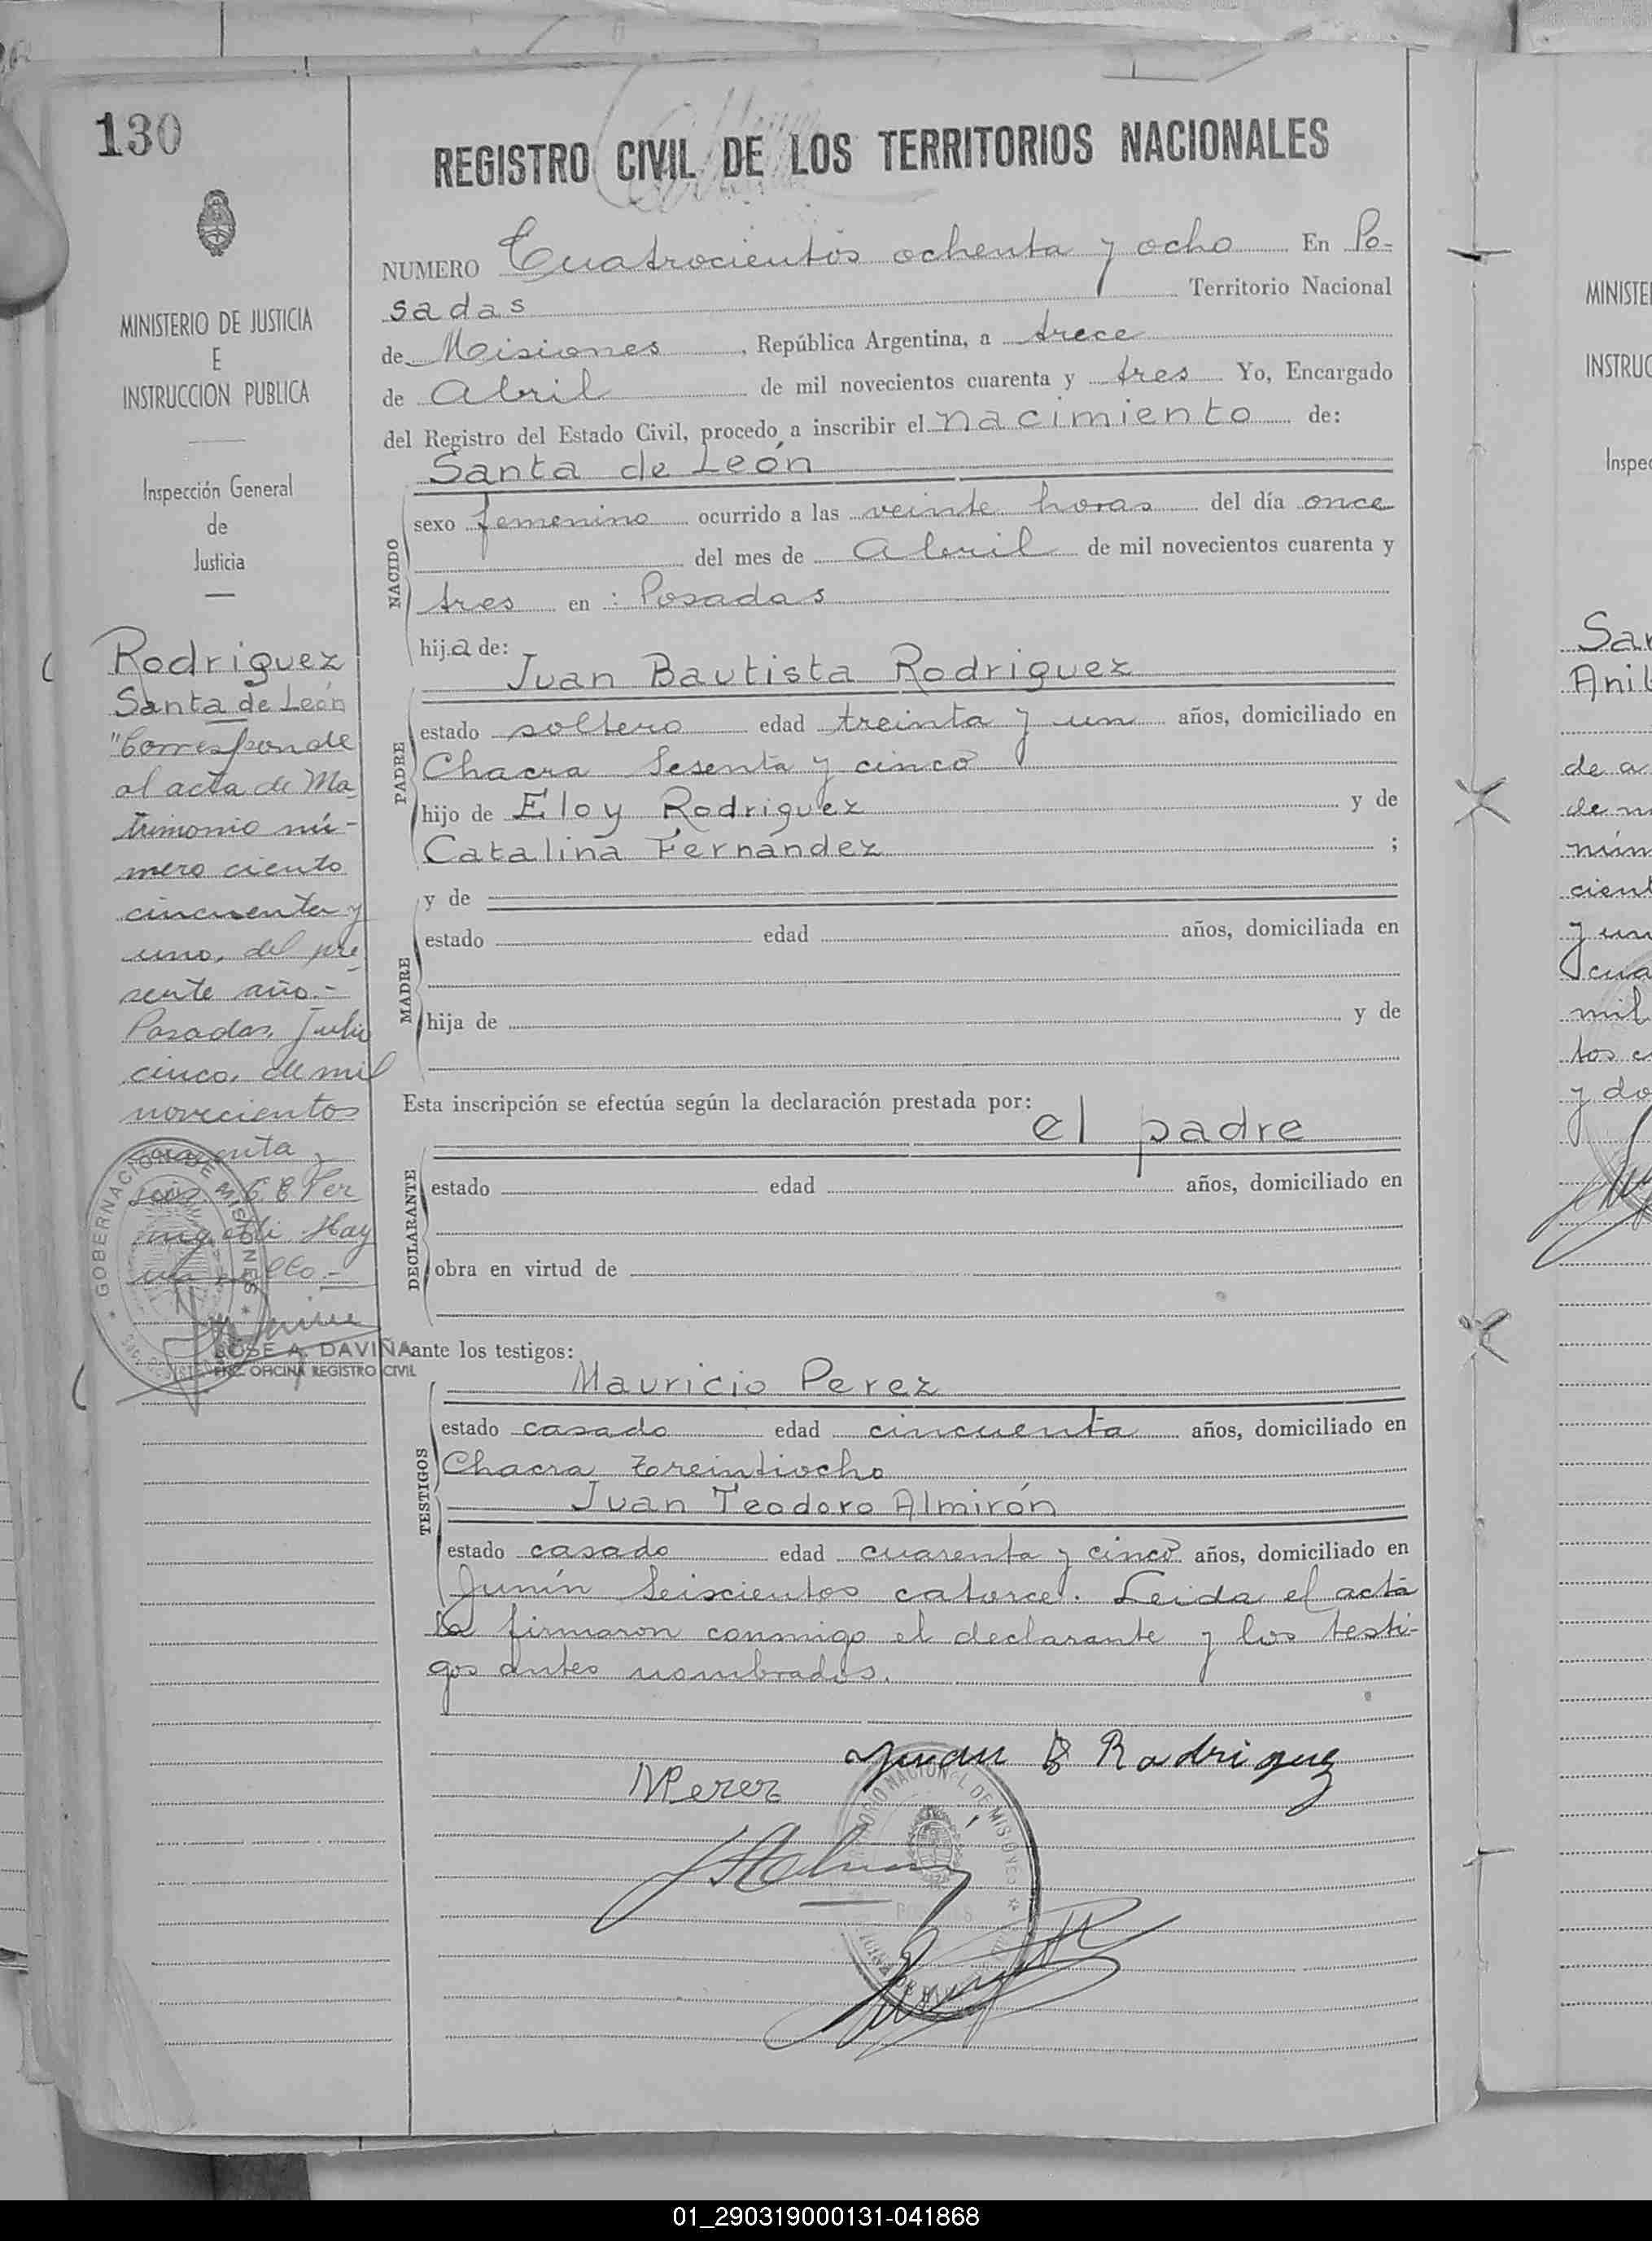 130
MINISTERIO DE JUSTICIA
E
INSTRUCCION PUBLICA
Inspección General
de
Justicia
Rodriguez
Santa de León
"Corresponde
al acta de Ma-
trimonio nú-
mero ciento
cincuenta y
uno, del pre-
sente año.-
Posadas, Julio
cinco, de mil
novecientos
y
Hay
GOBERNACION DE MISIONES
JOSE A. DAVIÑA
ENC. OFICINA REGISTRO CIVIL
REGISTRO CIVIL DE LOS TERRITORIOS NACIONALES
NUMERO Cuatrocientos ochenta y ocho En Po-
sadas Territorio Nacional
de Misiones, República Argentina, a trece
de Abril de mil novecientos cuarenta y tres Yo, Encargado
del Registro del Estado Civil, procedo a inscribir el nacimiento de:
Santa de León
NACIDO
sexo femenino ocurrido a las veinte horas del día once
del mes de Abril de mil novecientos cuarenta y
tres en : Posadas
hija de:
Juan Bautista Rodriguez
PADRE
estado soltero edad treinta y un años, domiciliado en
Chacra Sesenta y cinco
hijo de Eloy Rodriguez y de
Catalina Fernandez ;
y de
MADRE
estado edad años, domiciliada en
hija de y de
Esta inscripción se efectúa según la declaración prestada por:
el padre
DECLARANTE
estado edad años, domiciliado en
obra en virtud de
ante los testigos:
Mauricio Perez
TESTIGOS
estado casado edad cincuenta años, domiciliado en
Chacra treintiocho
Juan Teodoro Almirón
estado casado edad cuarenta y cinco años, domiciliado en
Junín Seiscientos catorce. Leida el acta
la firmaron conmigo el declarante y los testi-
gos antes nombrados.
Juan B Rodriguez
MPerez
MINISTE
INSTRUC
Inspec
San
Anib
de a
de m
núm
cient
y un
cua
mil
tos c
y do
01_290319000131-041868